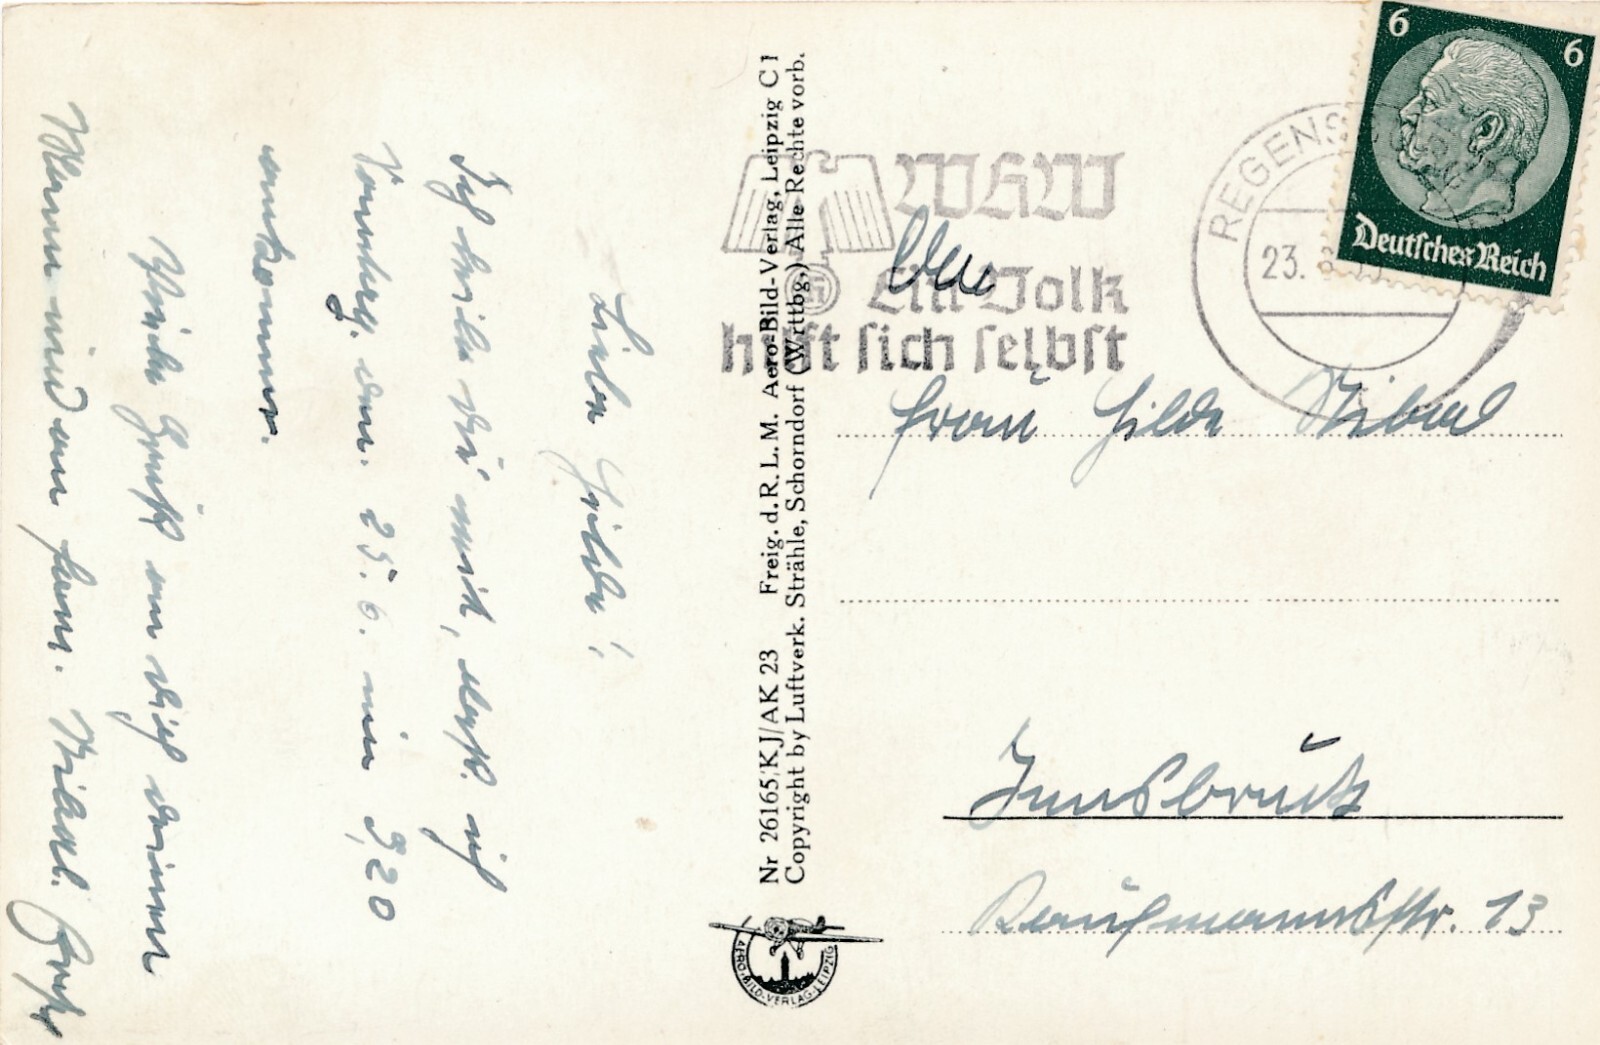 Liebe Hilde!
Ich teile dir mit, daß ich
Samstag, den 25. 6. um 9,20
ankomme.
Viele Grüße an dich deinen
Mann und an Fam.
Nr 26165/KJ/AK 23 Freig. d. R. L. M. Aero-Bild-Verlag, Leipzig C1
Copyright by Luftverk. Strähle, Schorndorf (Wrttbg.) Alle Rechte vorb.
AERO-BILD-VERLAG-LEIPZIG
WHW
Ein Volk
hilft sich selbst
REGENS
23.
6 6
Deutsches Reich
An
Frau Hilde
Innsbruck
Kaufmannstr. 13